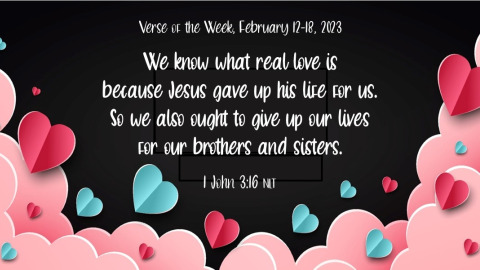 Verse of the Week, February 12-18, 2023
We know what real love is
because Jesus gave up his life for us.
So we also ought to give up our lives
for our brothers and sisters.
1 John 3:16 NLT